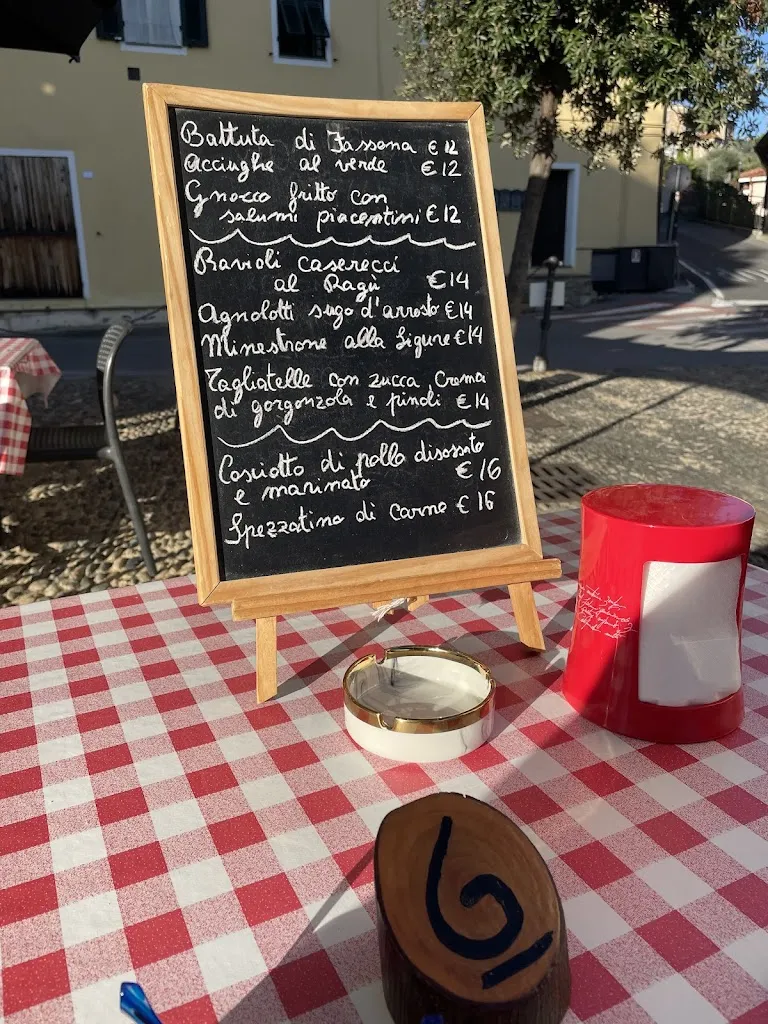 Battuta di Fassona €12
Acciughe al verde €12
Gnocco fritto con
salumi piacentini €12
Ravioli caserecci
al Ragù €14
Agnolotti sugo d'arrosto €14
Minestrone alla Ligure €14
Tagliatelle con zucca, Crema
di gorgonzola e pinoli €14
Cosciotto di pollo disossato
e marinato €16
Spezzatino di carne €16
6